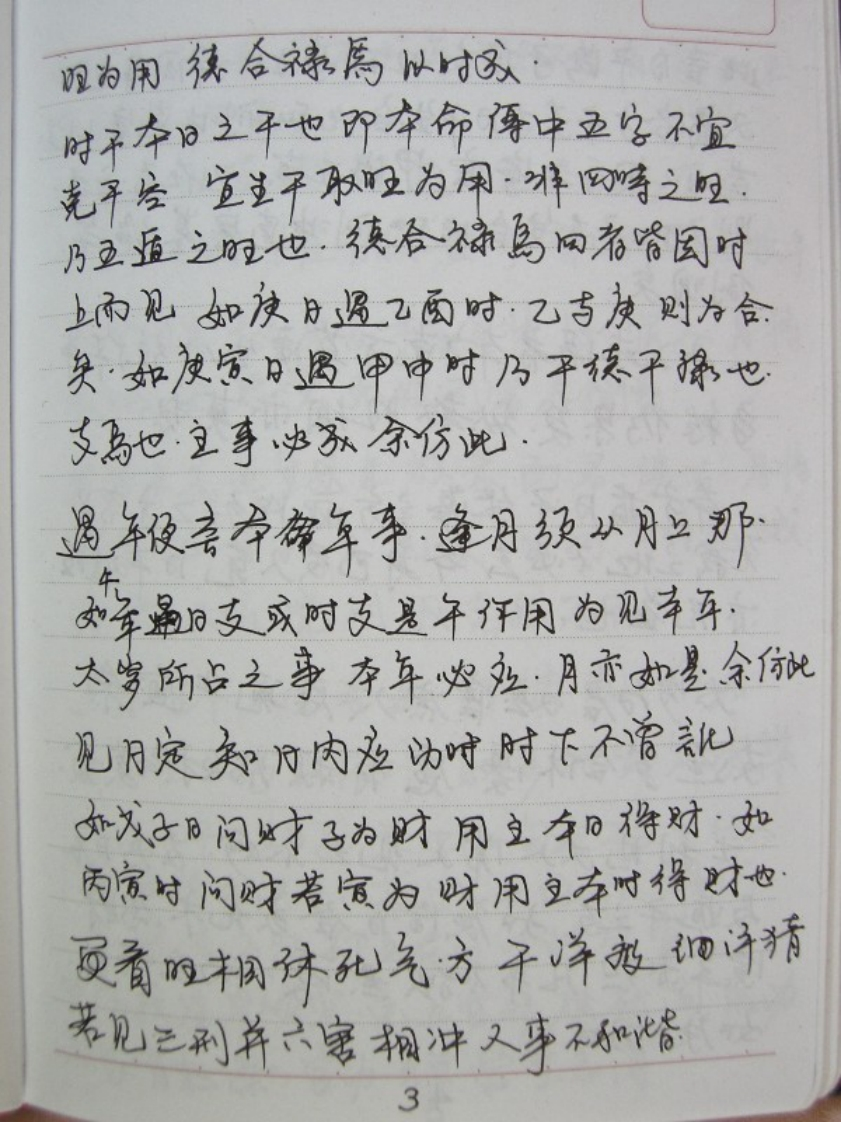 旺为用 德合禄馬以时成.
时干本日之干也即本命傳中五字不宜
克干容 宜生干取旺为用.非四時之旺.
乃五遁之旺也.德合禄馬四者皆因时
上而见 如庚日遇乙酉时.乙与庚则为合.
矣.如庚寅日遇甲申时乃干德干禄也.
支馬也.主事必成 余仿此.
遇年便言本年事.逢月须从月上那.
如午年遇日支或时支是午作用为见本年.
太岁所占之事 本年必应.月亦如是 余仿此
见日定知日内应 功时时下不曾訛
如戊子日问财子为财用主本日得财.如
丙寅时问财若寅为财用主本时得财也.
更看旺相休死气.方干详 细详猜
若见三刑并六害相冲又事不和谐.
3